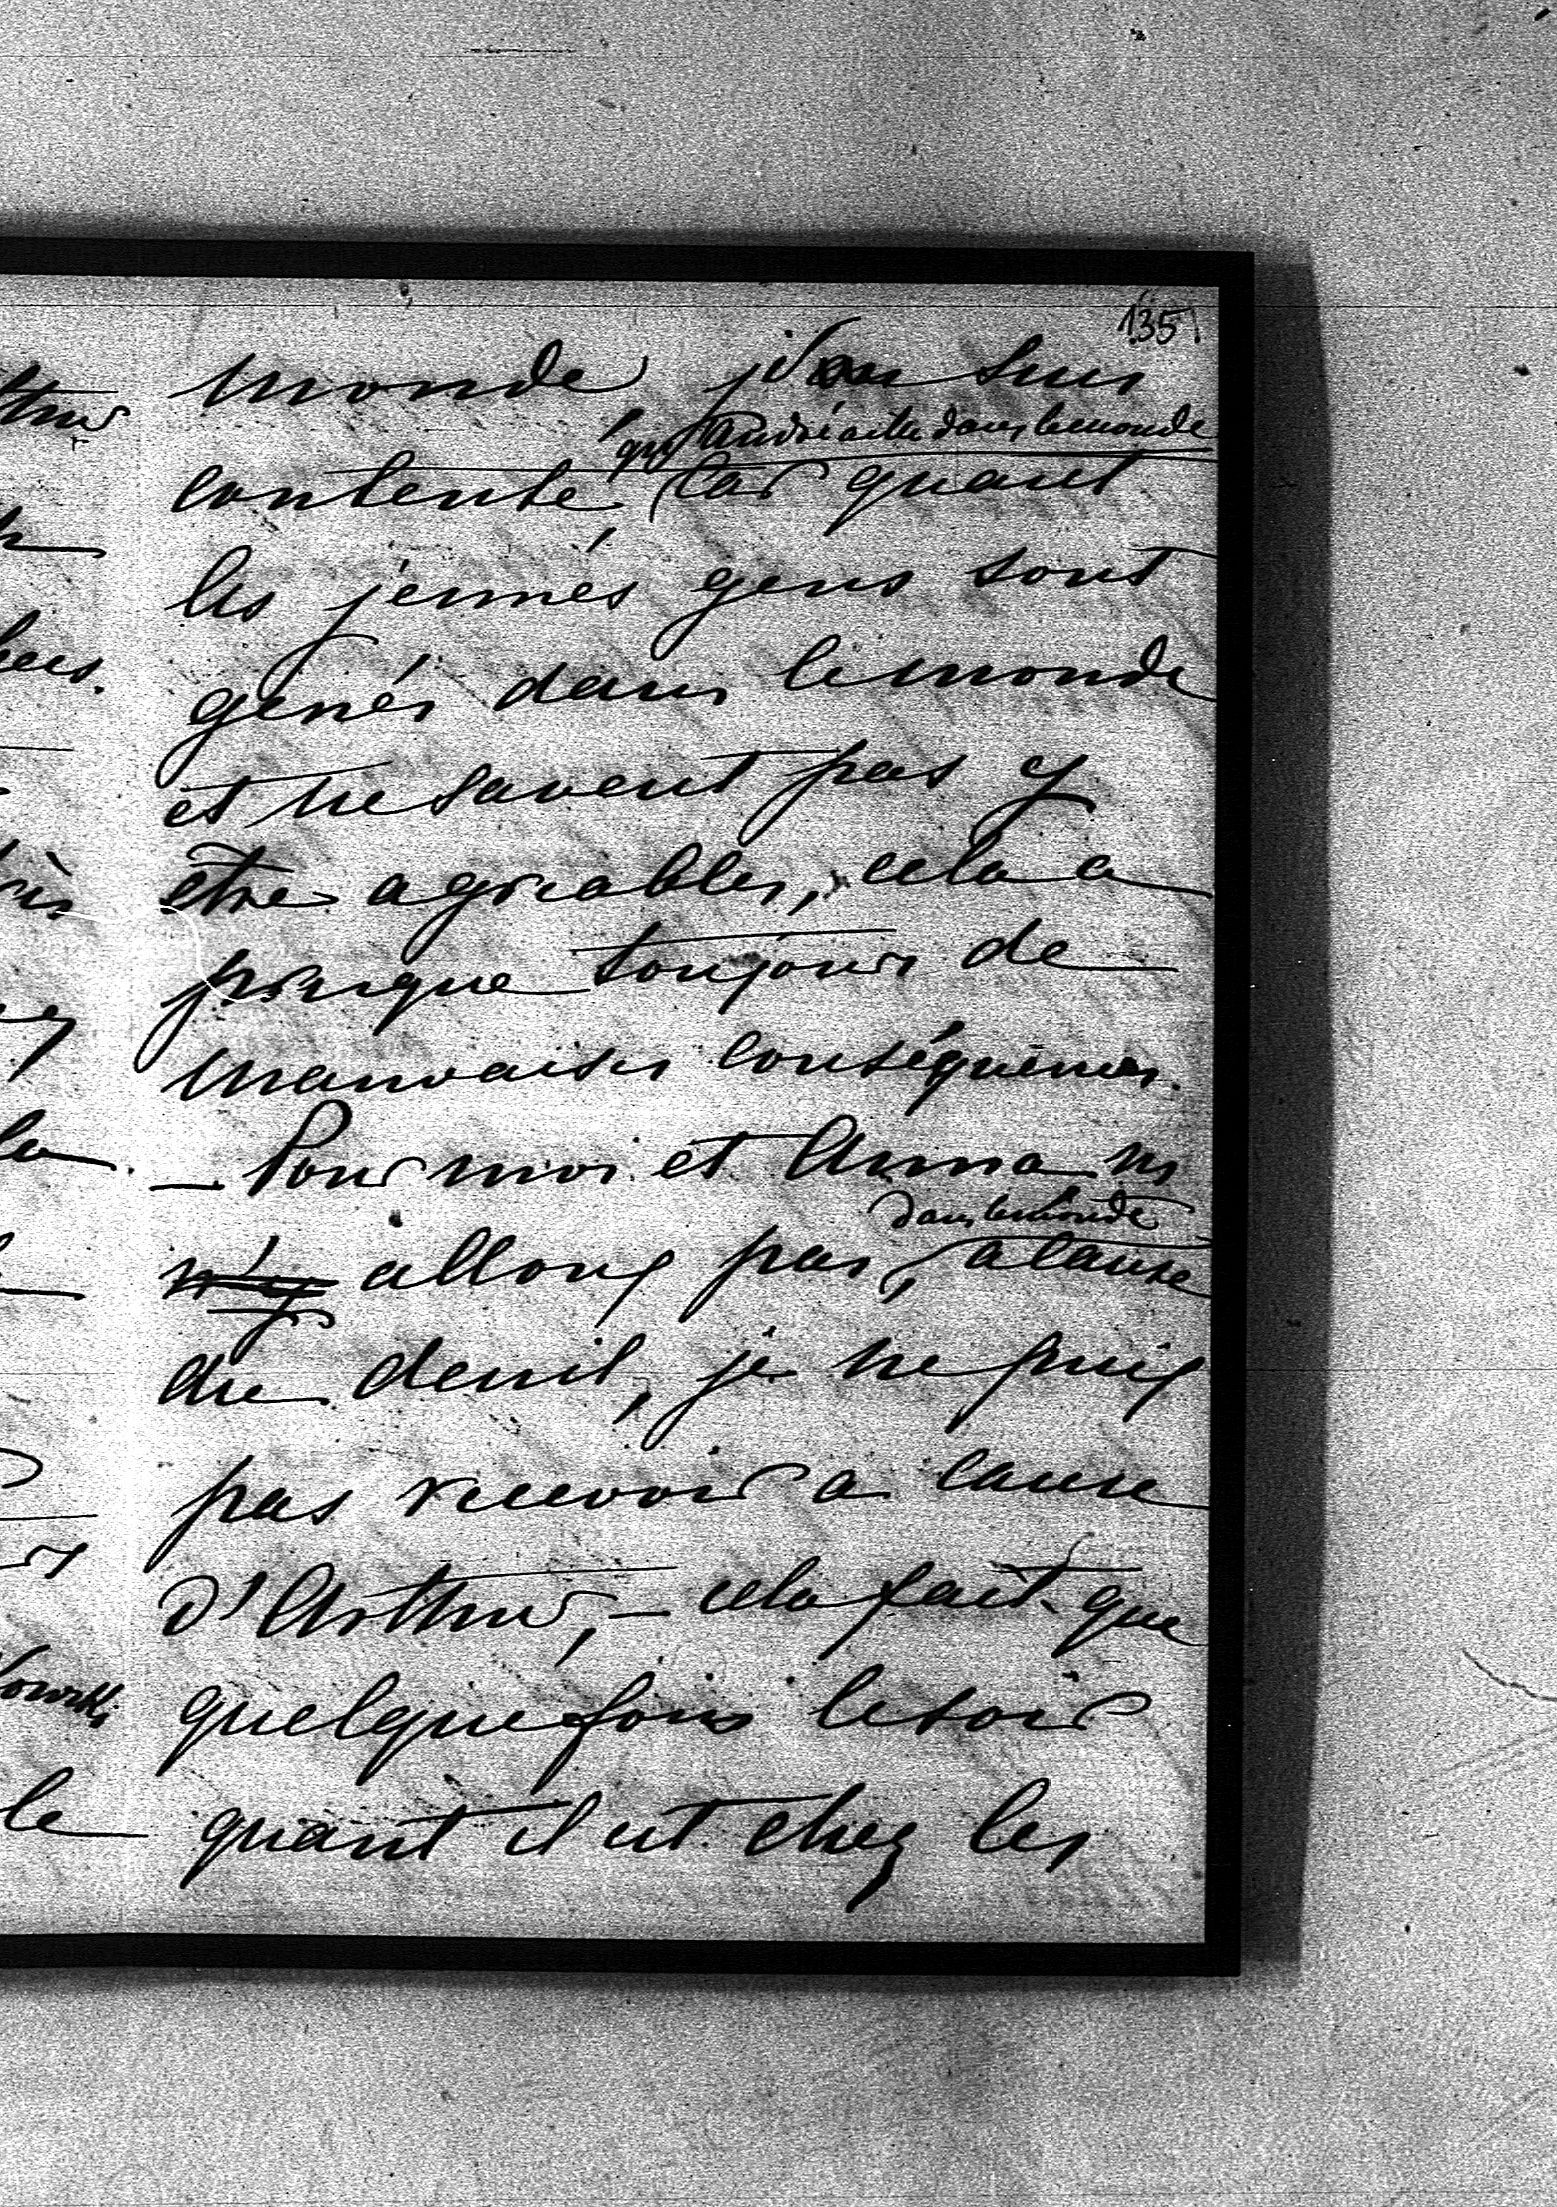 135
monde, j'en suis
qu'André aille dans le monde
contente, car quant
les jeunes gens sont
genés dans le monde
et ne savent pas y
etre agreables, cela a
presque toujours de
mauvaises conséquences.
– Pour moi et Anna ns
dans le monde
n'y allons pas, a cause
du deuil, je ne puis
pas recevoir a cause
d'Arthur, – cela fait que
quelque fois le soir
quant il est chez les